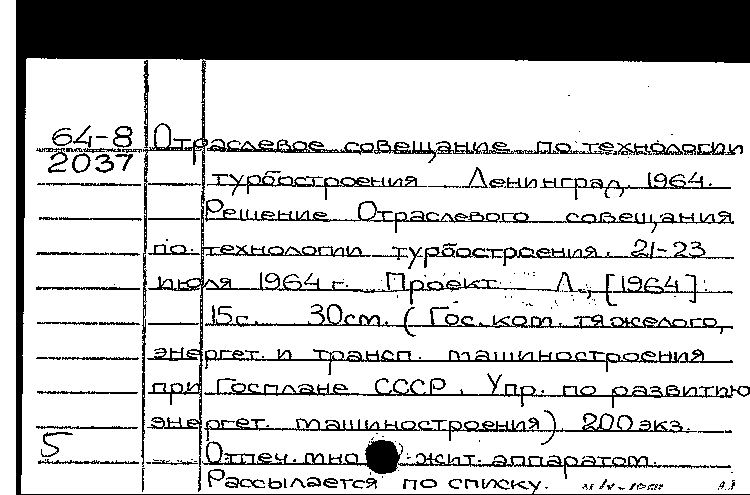 64-8 Отраслевое совещание по технологии
2037
турбостроения Ленинград. 1964.
Решение Отраслевого совещания
по технологии турбостроения. 21-23
июля 1964 г. Проект Л., [1964].
15с. 30см. (Гос. ком. тяжелого,
энергет. и трансп. машиностроения
при Госплане СССР. Упр. по развитию
энергет. машиностроения) 200 экз.
5
Отпеч. мно жит. аппаратом.
Рассылается по списку.